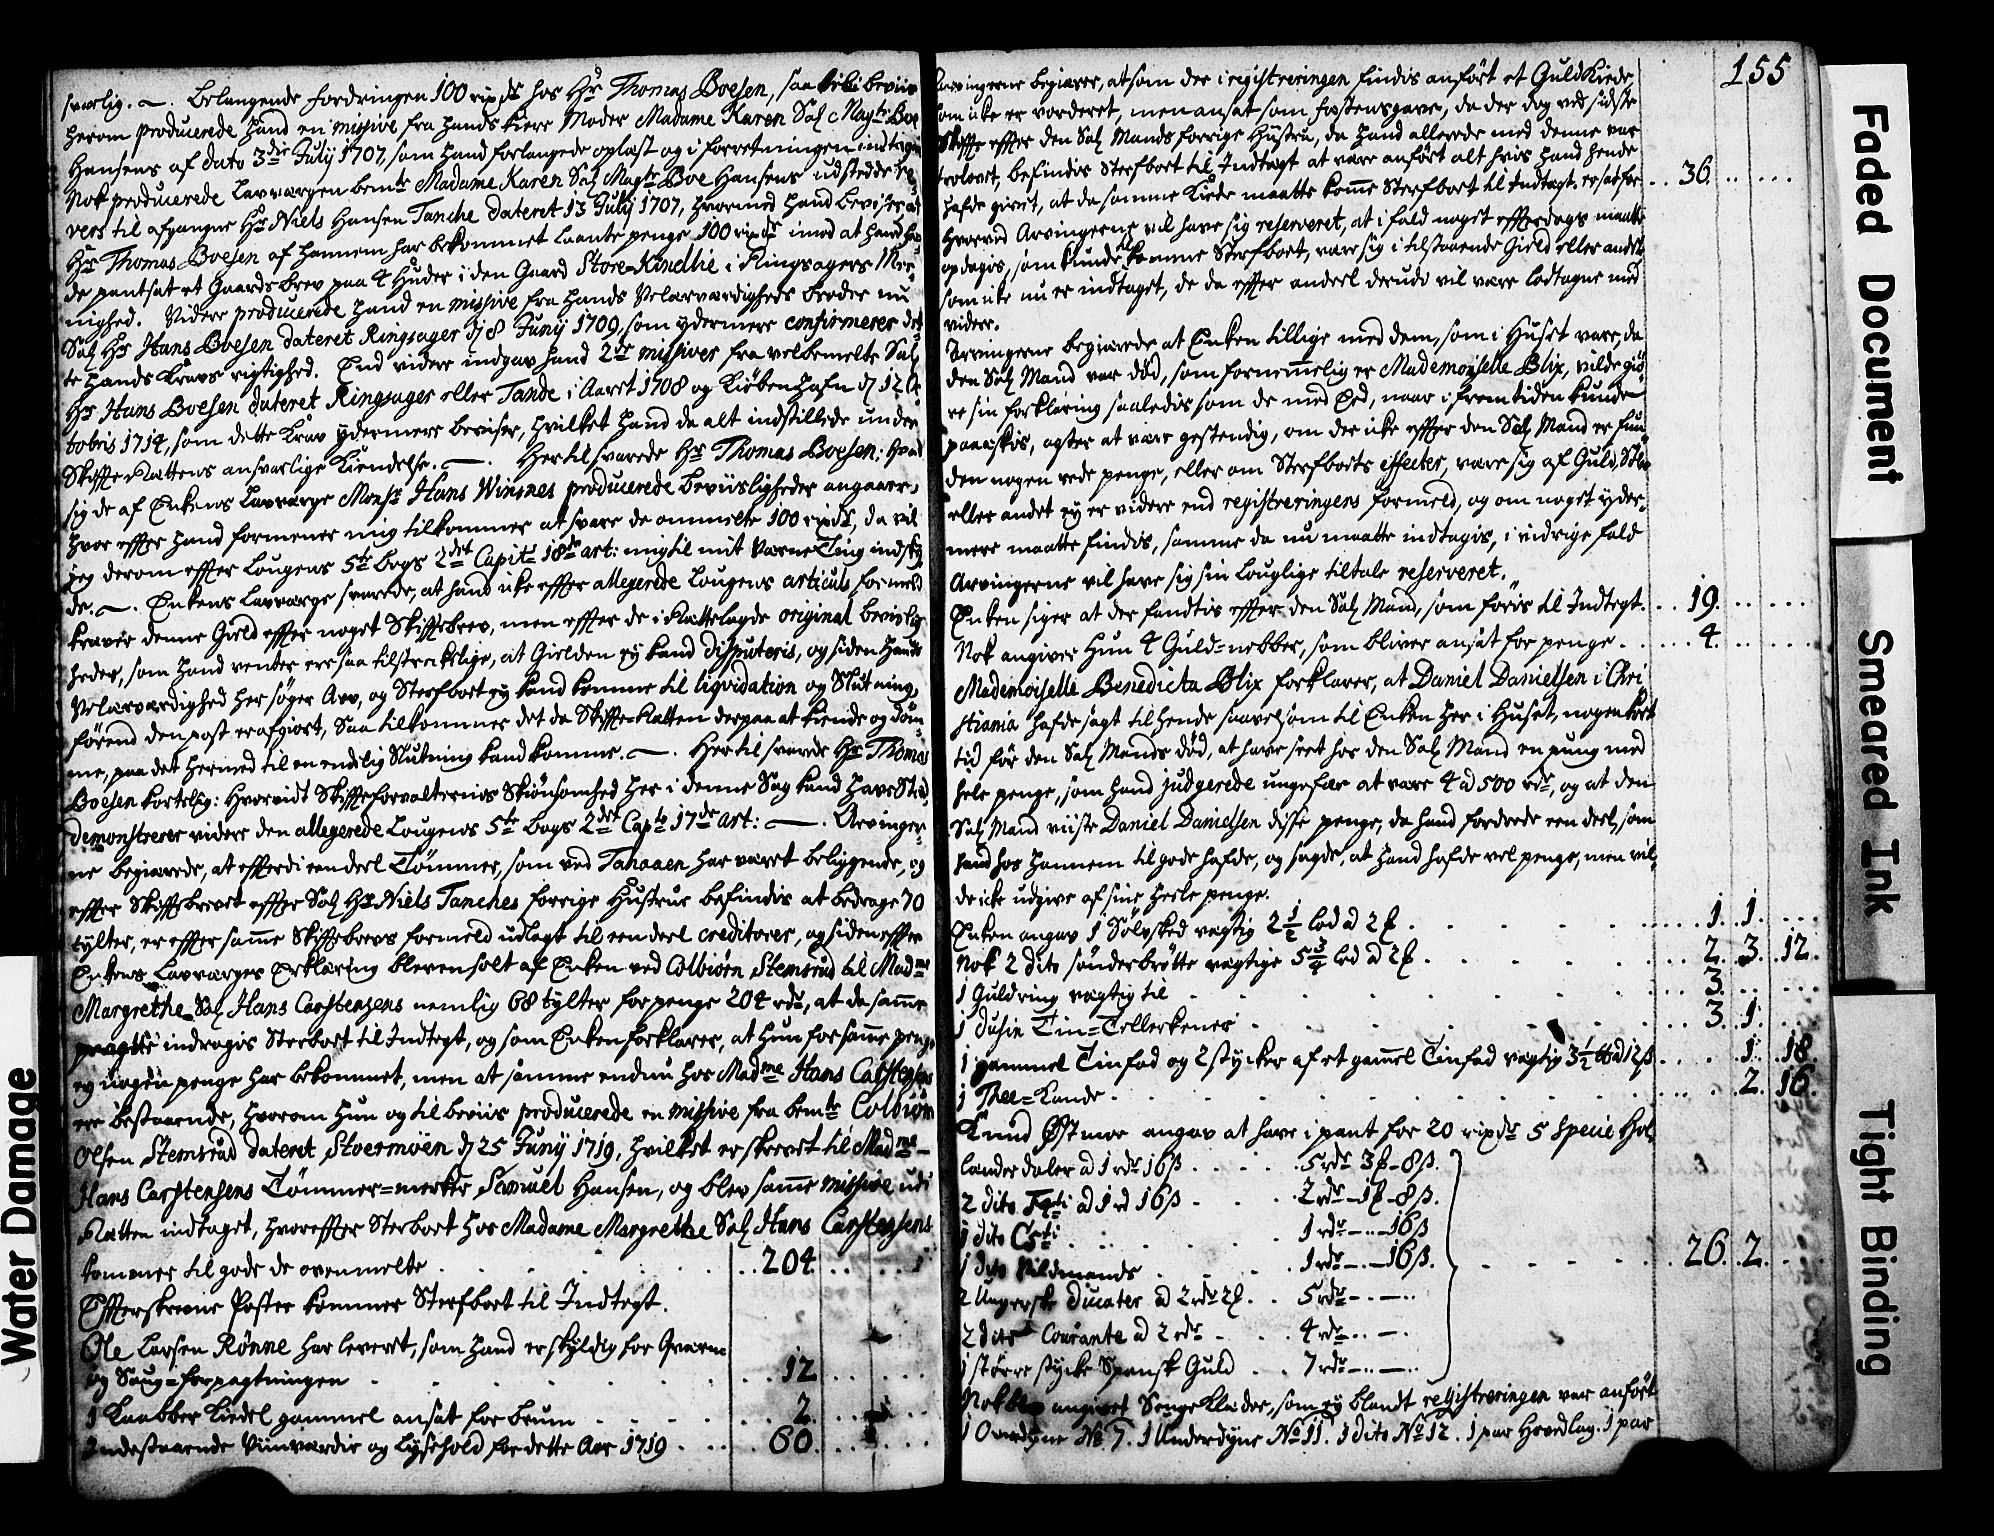 svarlig. Belangende fordringen 100 rixdr hos Hr Thomas Boesen, saa
herom producerede Hand en missive fra Hands kiere Moder Madame Karen Sal Magtr Boe
Hansens af dato 3die July 1707, som Hand forlangede oplæst og i forretningen indtagen
Nok producerede Lavværgen bemte Madame Karen Sal Magtr Boe Hansens udstedde re-
vers til afgangne Hr Niels Hansen Tanche dateret 13 July 1707, hvormed Hand beviser at
Hr Thomas Boesen af Hannem har bekommet laante penge 100 rixdr imod at Hand har
de pantsat et Gaards brev paa 4 Huder i den Gaard Store-Kindlie i Ringsagers Me-
nighed. Videre producerede Hand en missive fra Hands Velærværdigheds broder nu
Sal Hr Hans Boesen dateret Ringsager d 8 Junij 1709, som ydermere confirmerer det-
te Hands Kravs rigtighed. End videre indgav Hand 2de missiver fra velbemelte Sal
Hr Hans Boesen dateret Ringsager eller Tande i Aaret 1708 og Kiøbenhafn d 12 Oc
tobris 1714, som dette Krav ydermere beviser, Hvilket Hand da alt indstillede under
Skiffte-Rættens ansvarlige Kiendelse. Hertil svarede Hr Thomas Boesen; Hvad
sig de af Enkens Lavværge Monsr Hans Winsnes producerede Beviisligheder angaaer,
Hvor effter Hand formener mig tilkommer at svare de ommelte 100 rixdr, da vil
jeg derom effter Lougens 5te Bogs 2det Capitl 18de art: mig til mit Værne Ting indsky
de. Enkens Lavværge svarede, at Hand icke effter allegerede Lougens articul formeld
kræver denne Gield effter noget Skifftebrev, men effter de i Rættelagde original bevislig
heder, som Hand venter ere saa tilstreckelige, at Gielden ey kand disputeris, og siden Hands
Velærværdighed her søger Arv, og Sterfboet ey kand komme til liqvidation og Slutning,
førend den post er afgiort, Saa tilkommer det da Skiffte-Rætten derpaa at kiende og døm-
me, paa det hermed til en endelig Slutning kand komme. Hertil svarede Hr Thomas
Boesen kortelig: Hvorvidt Skiffteforvalternes Skiønsomhed Her i denne Sag kand Have Sted,
demonstrerer videre den allegerede Lougens 5te bogs 2det Capts 17de art: Arvinger-
ne begiærede, at effterdi een deel Tømmer, som ved Tanaaen Har været beliggende, og
effter Skifftebrevet effter Sal Hr Niels Tanches forrige Hustrue befindis at bedrage 70
tylter, er effter samme Skifftebrevs formeld udlagt til een deel creditorer, og siden effter
Enkens Lavværges Erklæring bleven solt af Enken ved Colbiørn Stemsrud til Madme
Margrethe Sal Hans Carstensens nemlig 68 tylter for penge 204 rdr, at da samme
indragis Sterboet til Indtegt, og som Enken forklarer, at Hun for samme penge
ey nogen penge har bekommet, men at samme endnu hos Madme Hans Carstensens
ere bestaaende, hvorom Hun og til beviis producerede en missive fra bemte Colbiørn
Olsen Stemsrud dateret Stoermoen d 25 Junij 1719, Hvilket er skrevet til Madme
Hans Carstensens Tømmer-mercker Samuel Hansen, og blev samme missive udi
Rætten indtaget, Hvoreffter Sterboet hos Madame Margrethe Sal Hans Carstensens
kommer til gode de ovenmelte . . . 204
Effterskrevne Poster kommer Sterfboet til Indtegt.
Ole Larsen Rønne har leveret, som Hand er skyldig for Qværne
og Saug-forpagtningen . . . 12
1 Kaabber Kiedel gammel ansat for bruun . . . 2
Indestaaende Viinværdie og Lysehold for dette Aar 1719 . . . 60
155
Arvingerne begiærer, at som der i registreringen findis anført et Guld Kiede
som icke er vorderet, men ansat som festensgave, da der dog ved sidste
Skiffte effter den Sal Mands forrige Hustru, da Hand allerede med denne var
trolovet, befindis Sterfboet til Indtegt at være anført alt hvis Hand hende
hafde givet, at da samme Kiede maatte komme Sterfboet til Indtegt, er sat for . . . 36
Hvorved Arvingerne vil have sig reserveret, at i fald noget effterdags maatte
opdagis, som kunde komme Sterfboet, være sig i tilstaaende Gield eller andet
som icke nu er indtaget, de da effter anderl derudi vil være lodtagne med
videre.
Arvingerne begiærede at Enken tillige med dem, som i Huset vare, da
den Sal Mand var død, som fornemmelig er Mademoiselle Blix, vilde giø-
re sin forklaring saaledis som de med Eed, naar i fremtiden kunde
paaæskis, agter at være gestendig, om der icke effter den Sal Mand er fun-
den nogen rede penge, eller om Sterfboets effecter, være sig af Guld, Sølv
eller andet ey er videre end registreringens formeld, og om noget yder-
mere maatte findis, samme da nu maatte indtagis, i vidrige fald
Arvingerne vil have sig sin Louglige tiltale reserveret.
Enken siger at der fandtis effter den Sal Mand, som føris til Indtegt . . . 19
Nok angiver Hun 4 Guld-nobber, som bliver ansat for penge . . . 4
Mademoiselle Benedicta Blix forklarer, at Daniel Danielsen i Chri
stiania hafde sagt til hende saavelsom til Enken her i Huset, nogen kort
tid før den Sal Mands død, at have seet hos den Sal Mand en pung med
hele penge, som Hand judgerede ungefær at være 4 a 500 rdr, og at den
Sal Mand viiste Daniel Danielsen disse penge, da Hand fordrede een deel, som
Hand hos Hannem til gode hafde, og sagde, at Hand hafde vel penge, men vil-
de icke udgive af sine heele penge.
Enken angav 1 Sølvskeed vægtig 2 1/2 Lod a 2 . . . 1. 1.
Nok 2 dito sønderbrøtte vægtige 5 3/4 Lod a 2 . . . 2. 3. 12.
1 Guldring vægtig til . . . 3.
1 dusin Tin-Tellerkener . . . 3. 1.
1 gammel Tinfad og 2 stycker af et gammel Tinfad vægtig 3 1/2 a 12 ß . . . 1. 18.
1 Thee-Kande . . . 2. 16.
Knud Østmoe angav at have i pant for 20 rixdr 5 Specie Hol
lander daler a 1 rdr 16 ß . . . 5 rdr 3 - 8 ß.
2 dito Fqti a 1 rd 16 ß . . . 2 rdr - 1 - 8 ß.
1 dito C5ti . . . 1 rdr - 16 ß
1 dito Vildmands . . . 1 rdr - 16 ß. 26. 2.
2 Ungerske Ducater a 2 rdr 2 . . . 5 rdr
2 dito Courante a 2 rdr . . . 4 rdr
1 større stycke Spansk Guld . . . 7 rdr
Nok angivet Sengeklæder, som ey blandt registreringen var anført
1 Overdyne No 7. 1 Underdyne No 11. 1 dito No 12. 1 par Hovedlag. 1 par
Water Damage
Faded Document
Smeared Ink
Tight Binding